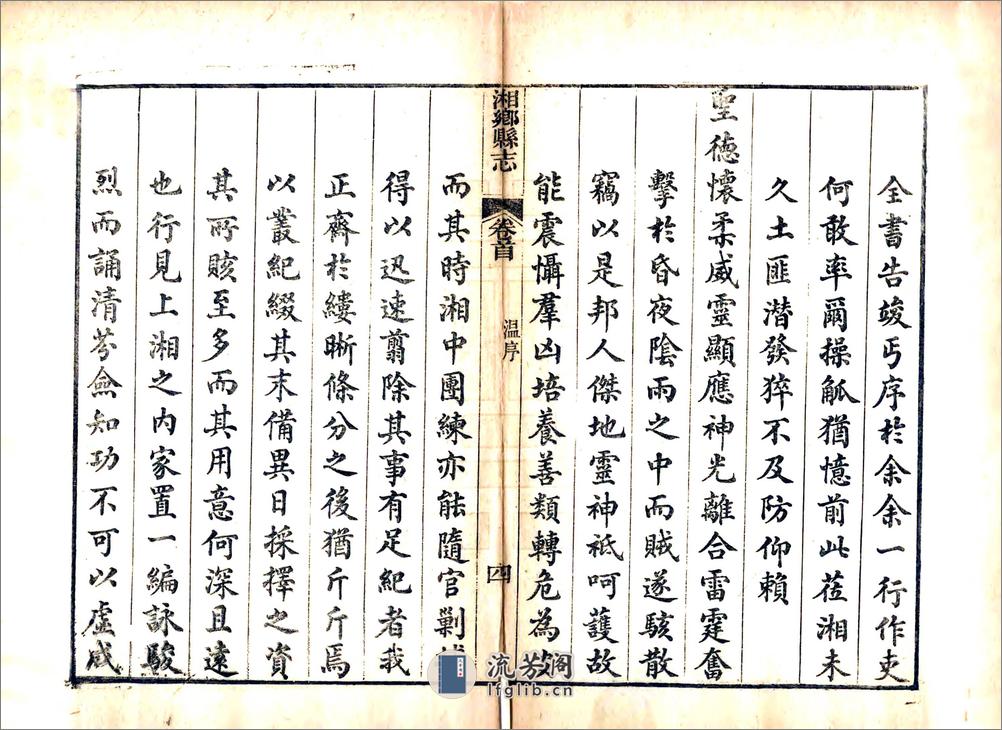 全書告竣丐序於余余一行作吏
何敢率爾操觚猶憶前此莅湘未
久土匪潛發猝不及防仰賴
聖德懷柔威靈顯應神光離合雷霆奮
擊於昏夜陰雨之中而賊遂駭散
竊以是邦人傑地靈神祇呵護故
能震懾羣凶培養善類轉危為
湘鄉縣志
卷首
温序
四
而其時湘中團練亦能隨官剿
得以迅速翦除其事有足紀者我
正齋於縷晰條分之後猶斤斤焉
以叢紀綴其末備異日採擇之資
其所賅至多而其用意何深且遠
也行見上湘之內家置一編詠駿
烈而誦清芬僉知功不可以虛成
流芳阁
lfglib.cn